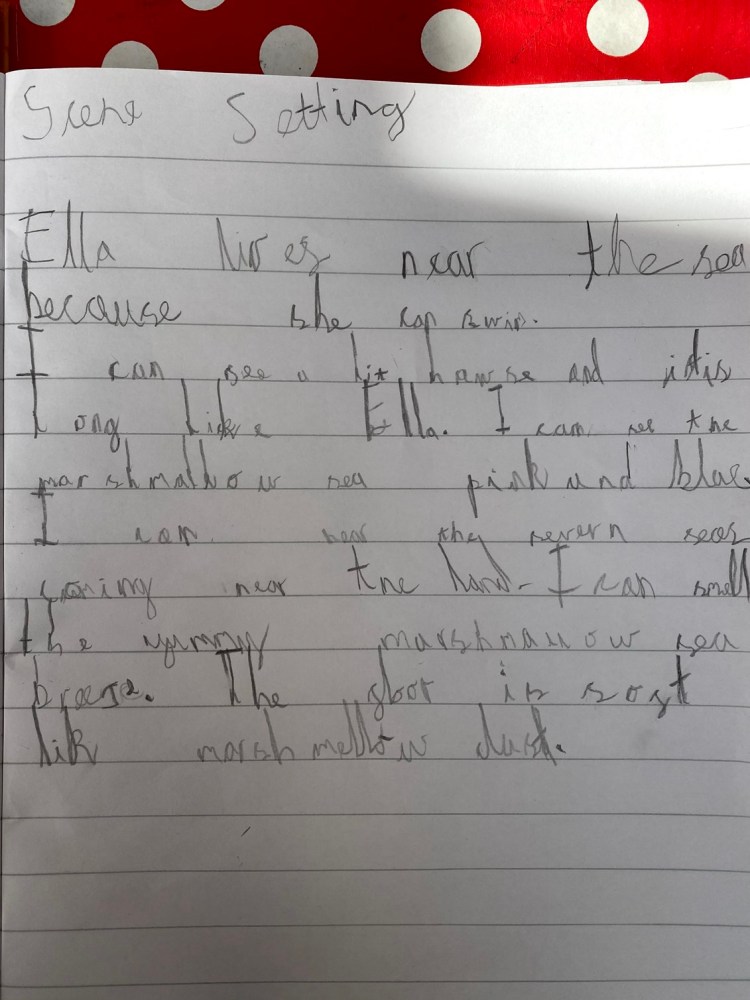 Scene Setting
Ella lives near the sea
because she can swim.
I can see a lit hawse and it is
long like Ella. I can see the
marshmallow sea pink and blue.
I can hear the seven seas
coming near the land. I can smell
the yummy marshmallow sea
breeze. The floor is soft
lik marshmellow dust.